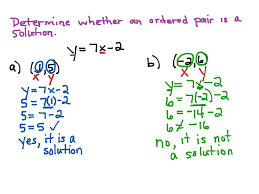 Determine whether an ordered pair is a
solution.
y = 7x - 2
a) (1, 5)
x y
y = 7x - 2
5 = 7(1) - 2
5 = 7 - 2
5 = 5 ✓
yes, it is a
solution
b) (-2, 6)
x y
y = 7x - 2
6 = 7(-2) - 2
6 = -14 - 2
6 ≠ -16
no, it is not
a solution